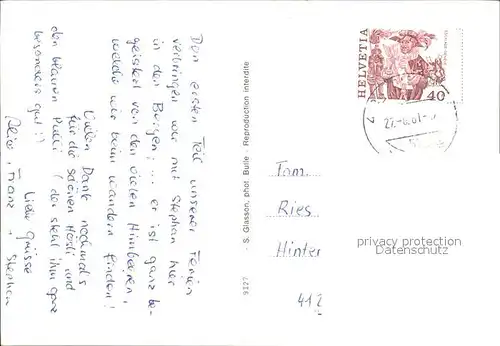 Den ersten Teil unserer Ferien
verbringen wir mit Stephan hier
in den Bergen; ... er ist ganz be-
geistert von den vielen Himbeeren,
welche wir beim wandern finden!
Vielen Dank nochmals
für die schönen Hösli und
den blauen Pulli (der steht ihm ganz
besonders gut!!)
Liebe Grüsse
Franz + Stephan
9127 - S. Glasson, phot. Bulle - Reproduction interdite
HELVETIA
40
Fam.
Ries
Hinter
412
privacy protection
Datenschutz